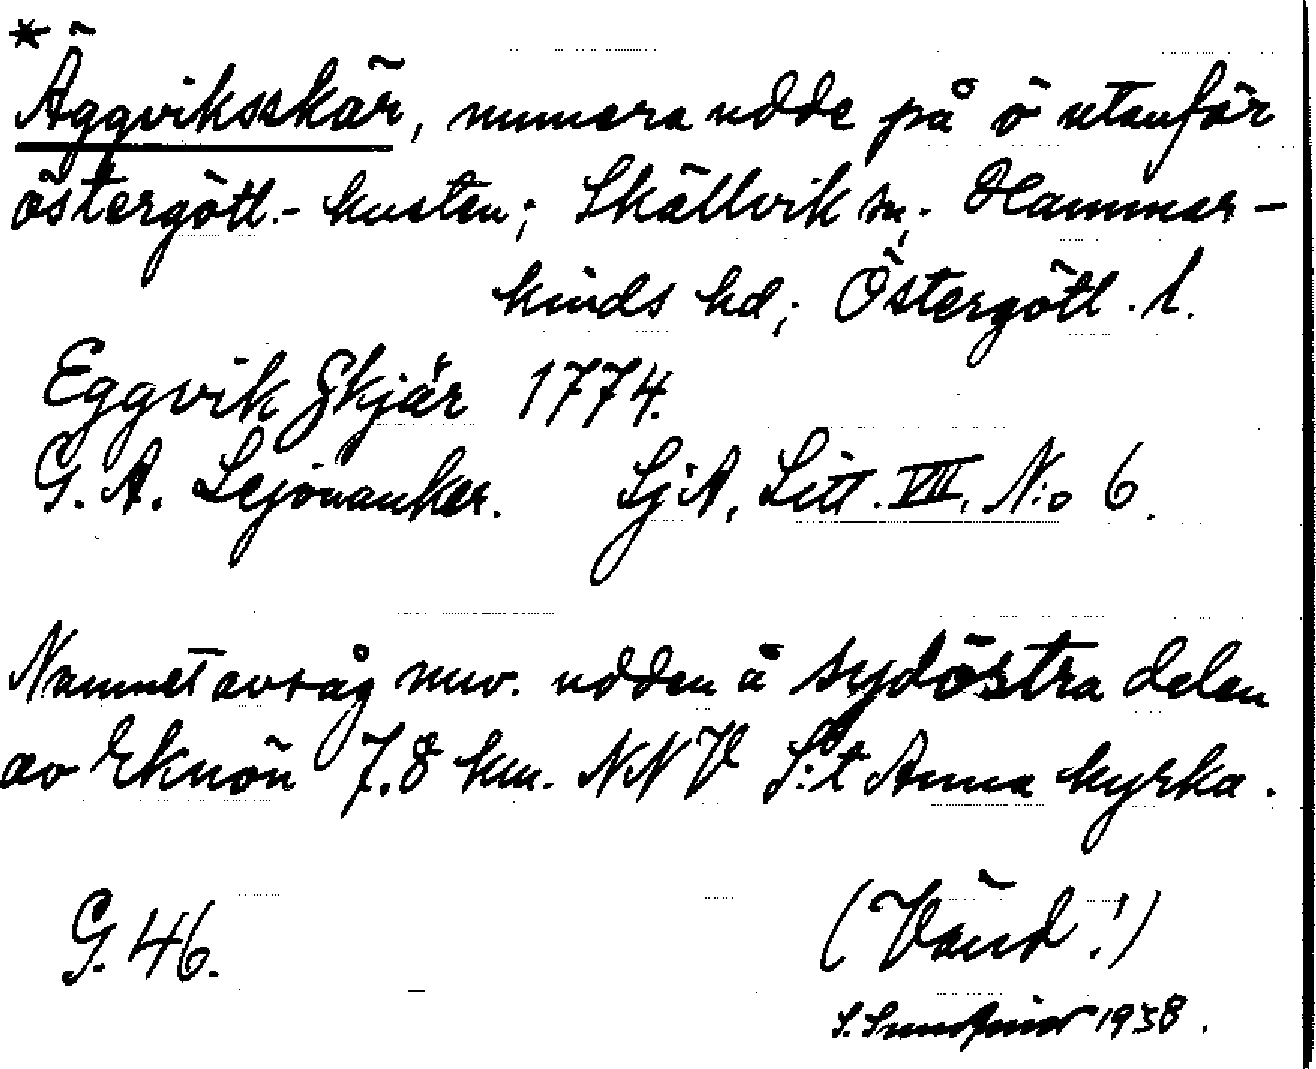 *
Äggviksskär, numera udde på ö utanför
östergötl.- kusten; Skällvik sn; Hammar-
kinds hd; Östergötl. l.
Eggvik Skjär 1774.
G. A. Lejonanker. SjA, Litt. VIII, N:o 6.
Namnet avsåg nuv. udden å sydöstra delen
av Eknön 7.8 km. NNV S:t Anna kyrka.
G. 46.
(Vänd!)
S. 1938.